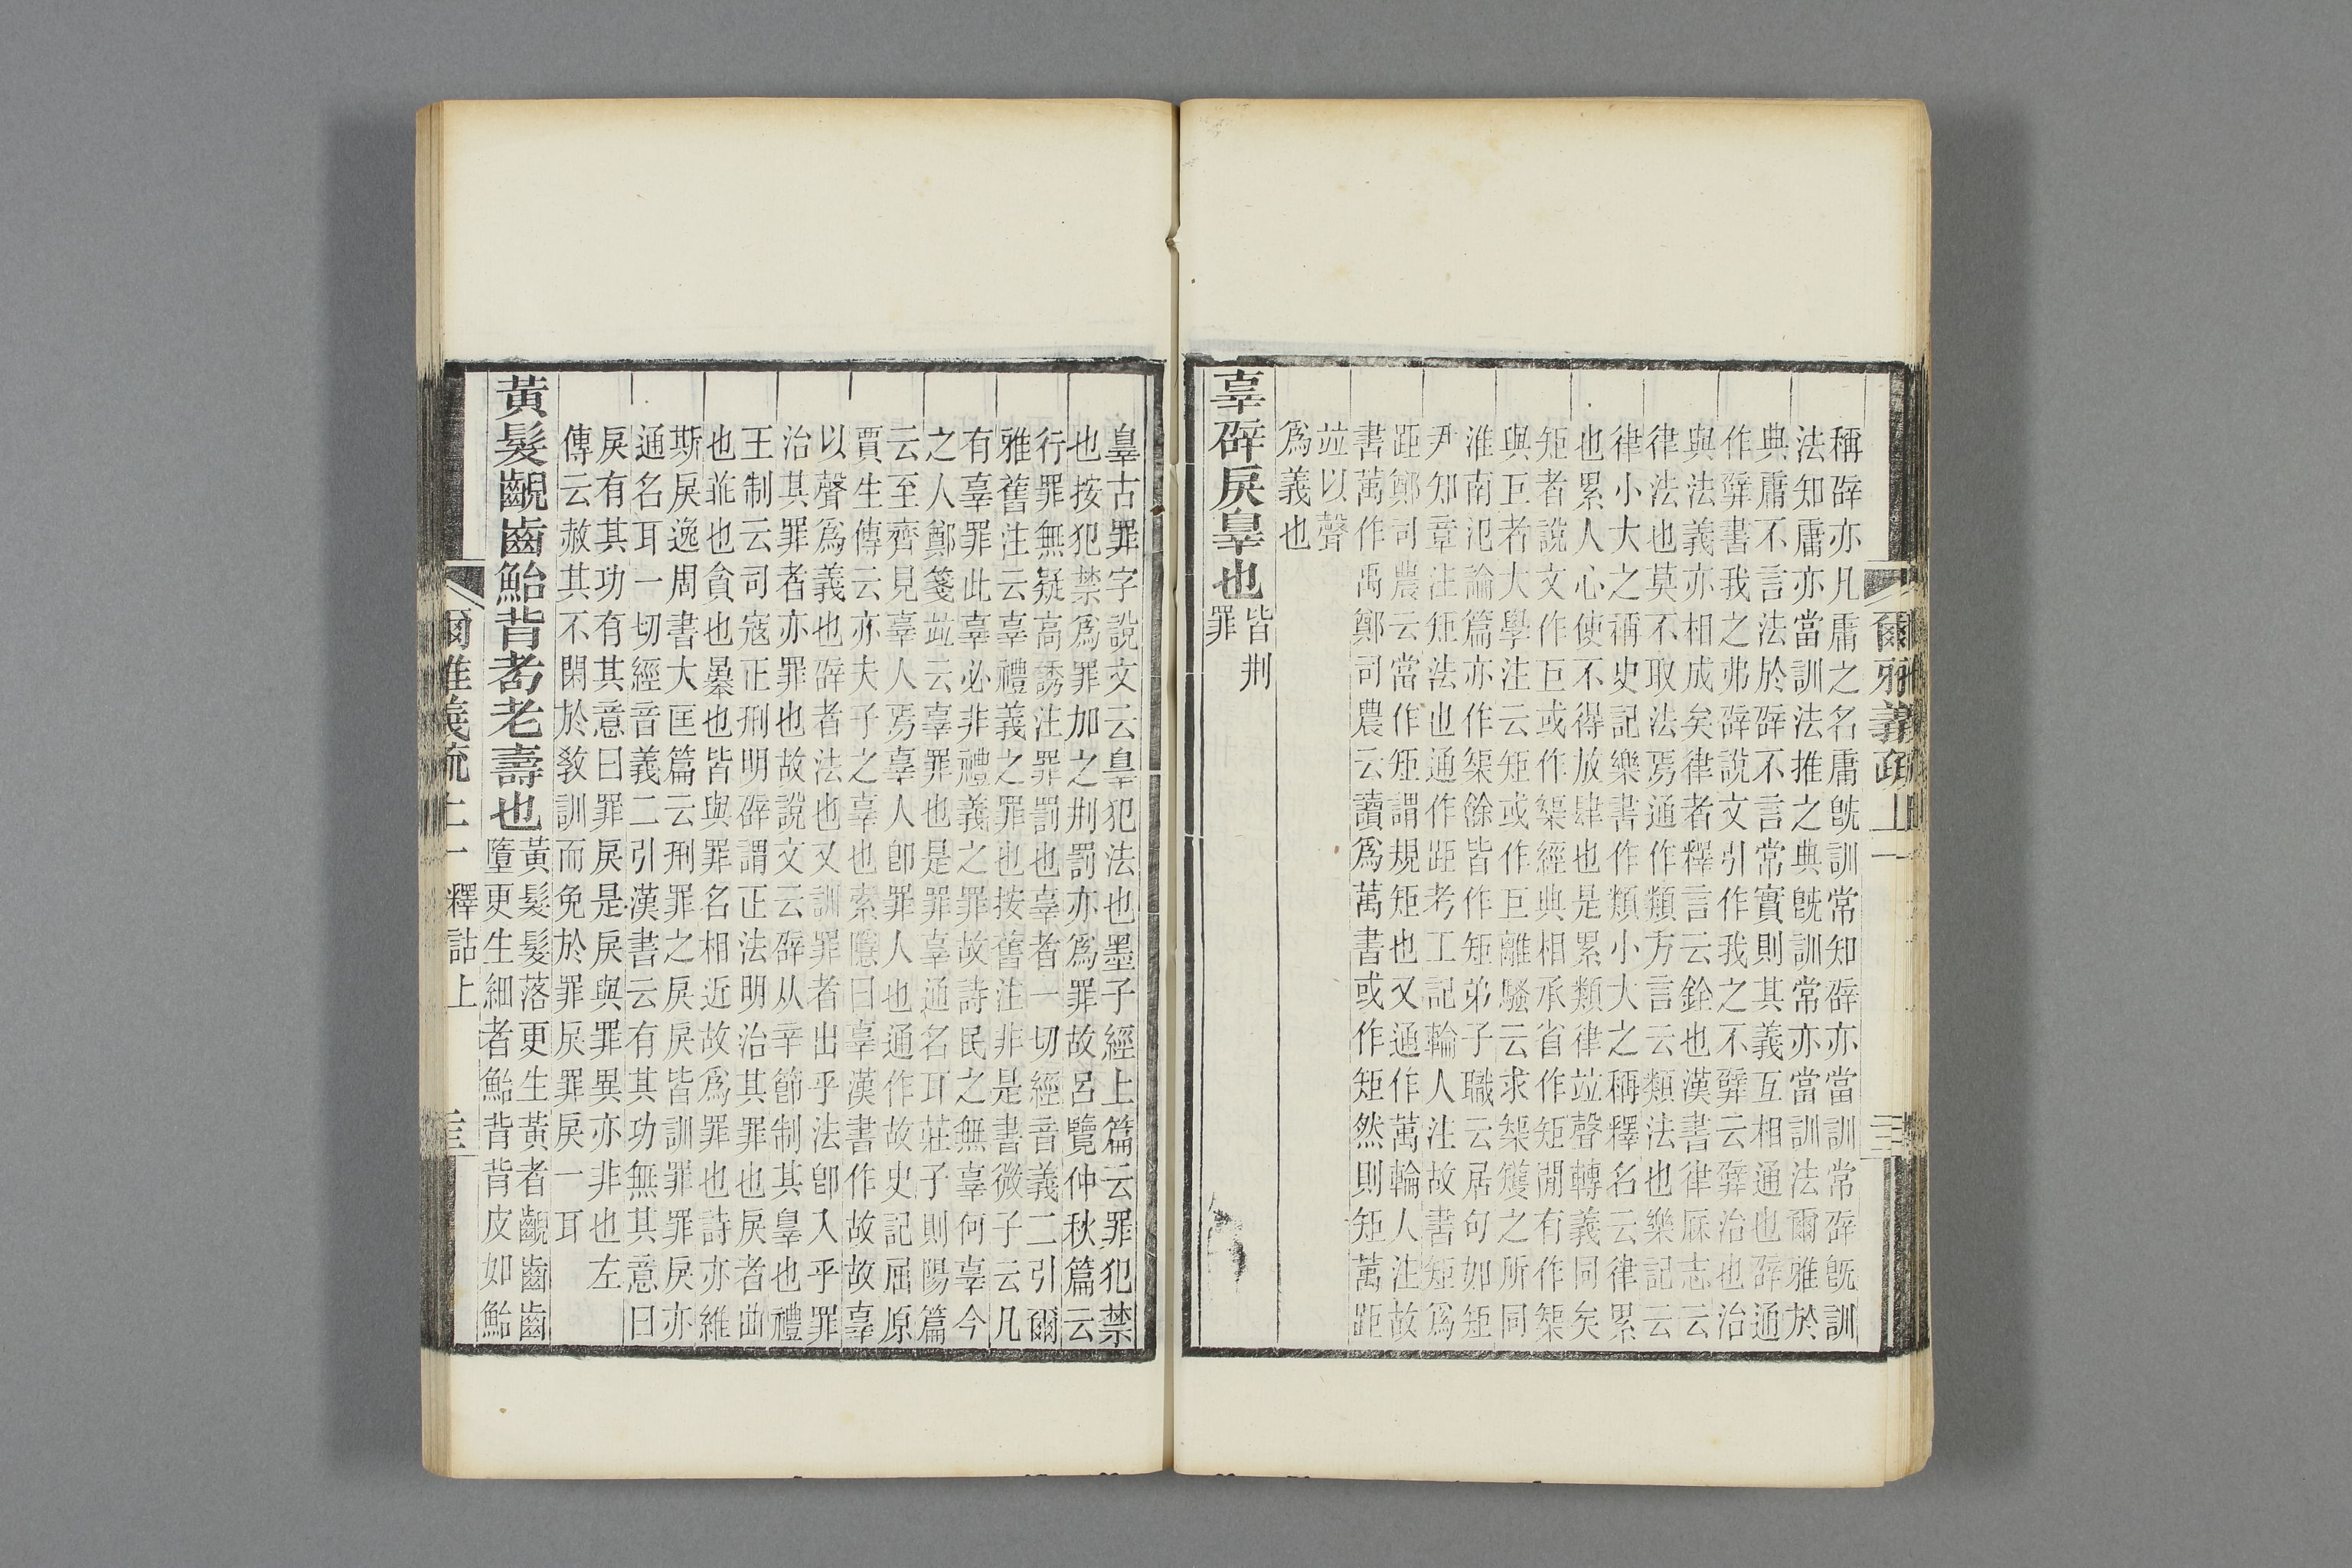 爾雅義疏 上一
稱辟亦凡庸之名庸旣訓常知辟亦當訓常辟旣訓
法知庸亦當訓法推之典旣訓常亦當訓法爾雅於
典庸不言法於辟不言常實則其義互相通也辟通
作𨐨書我之弗辟說文引作我之不𨐨云𨐨治也治
與法義亦相成矣律者釋言云銓也漢書律厤志云
律法也莫不取法焉通作類方言云類法也樂記云
律小大之稱史記樂書作類小大之稱釋名云律累
也累人心使不得放肆也是累類律竝聲轉義同矣
矩者說文作巨或作榘經典相承省作矩閒有作榘
與巨者大學注云矩或作巨離騷云求榘矱之所同
淮南氾論篇亦作榘餘皆作矩弟子職云居句如矩
尹知章注矩法也通作距考工記輪人注故書矩爲
距鄭司農云當作矩謂規矩也又通作萬輪人注故
書萬作禹鄭司農云讀爲萬書或作矩然則矩萬距
竝以聲
爲義也
辜辟戾辠也 皆刑
罪
辠古罪字說文云辠犯法也墨子經上篇云罪犯禁
也按犯禁爲罪加之刑罰亦爲罪故呂覽仲秋篇云
行罪無疑高誘注罪罰也辜者一切經音義二引爾
雅舊注云辜禮義之罪也按舊注非是書微子云凡
有辜罪此辜必非禮義之罪故詩民之無辜何辜今
之人鄭箋竝云辜罪也是罪辜通名耳莊子則陽篇
云至齊見辜人焉辜人卽罪人也通作故史記屈原
賈生傳云亦夫子之辜也索隱曰辜漢書作故故辜
以聲爲義也辟者法也又訓罪者出乎法卽入乎罪
治其罪者亦罪也故說文云辟从辛節制其辠也禮
王制云司寇正刑明辟謂正法明治其罪也戾者曲
也乖也貪也暴也皆與罪名相近故爲罪也詩亦維
斯戾逸周書大匡篇云刑罪之戾戾皆訓罪罪戾亦
通名耳一切經音義二引漢書云有其功無其意曰
戾有其功有其意曰罪戾是戾與罪異亦非也左
傳云赦其不閑於敎訓而免於罪戾罪戾一耳
黃髮齯齒鮐背耇老壽也 黃髮髮落更生黃者齯齒齒
墮更生細者鮐背背皮如鮐
爾雅義疏上一 釋詁上